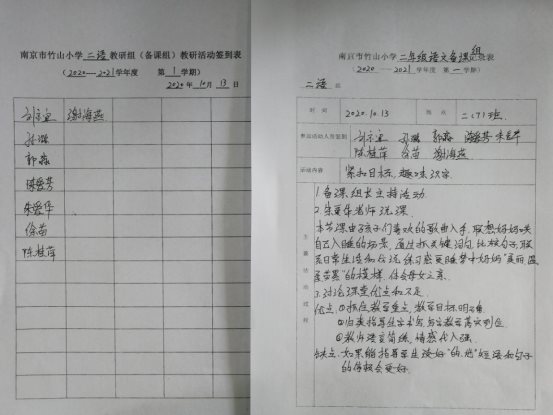 南京市竹山小学二语教研组（备课组）教研活动签到表
（2020—2021学年度 第1学期）
2020年10月13日
刘京宜 谢海燕
孙璐
郭淼
陈爱芳
朱爱华
徐苗
陈桂萍
南京市竹山小学二年级语文备课组记录表
（2020—2021学年度 第一学期）
二语 组
时间 2020.10.13 地点 二（7）班
参加活动人员签到 刘京宜 孙璐 郭淼 陈爱芳 朱爱华
陈桂萍 徐苗 谢海燕
活动内容 紧扣目标，趣味识字
主要活动过程
1.备课组长主持活动
2.朱爱华老师说课
本节课由孩子们喜欢的歌曲入手，联想妈妈哄
自己入睡的场景，通过抓关键词句，比较句子，联
系日常生活和仿说，练习感受睡梦中妈妈"美丽、温
柔、劳累"的模样，体会母女之意。
3.讨论课堂优点和不足。
优点：①抓住教学重点，教学目标明确
②归类指导生字书写，写字教学落实到位
③教师语言简练，情感代入强
缺点：如果能指导学生读好"的、地"短语和句子
的停顿会更好。